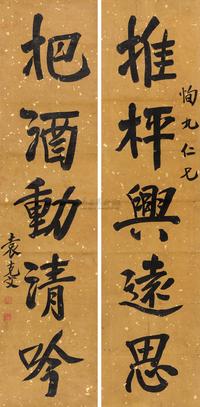 恂九仁兄
推枰興遠思
把酒動清吟
袁克文